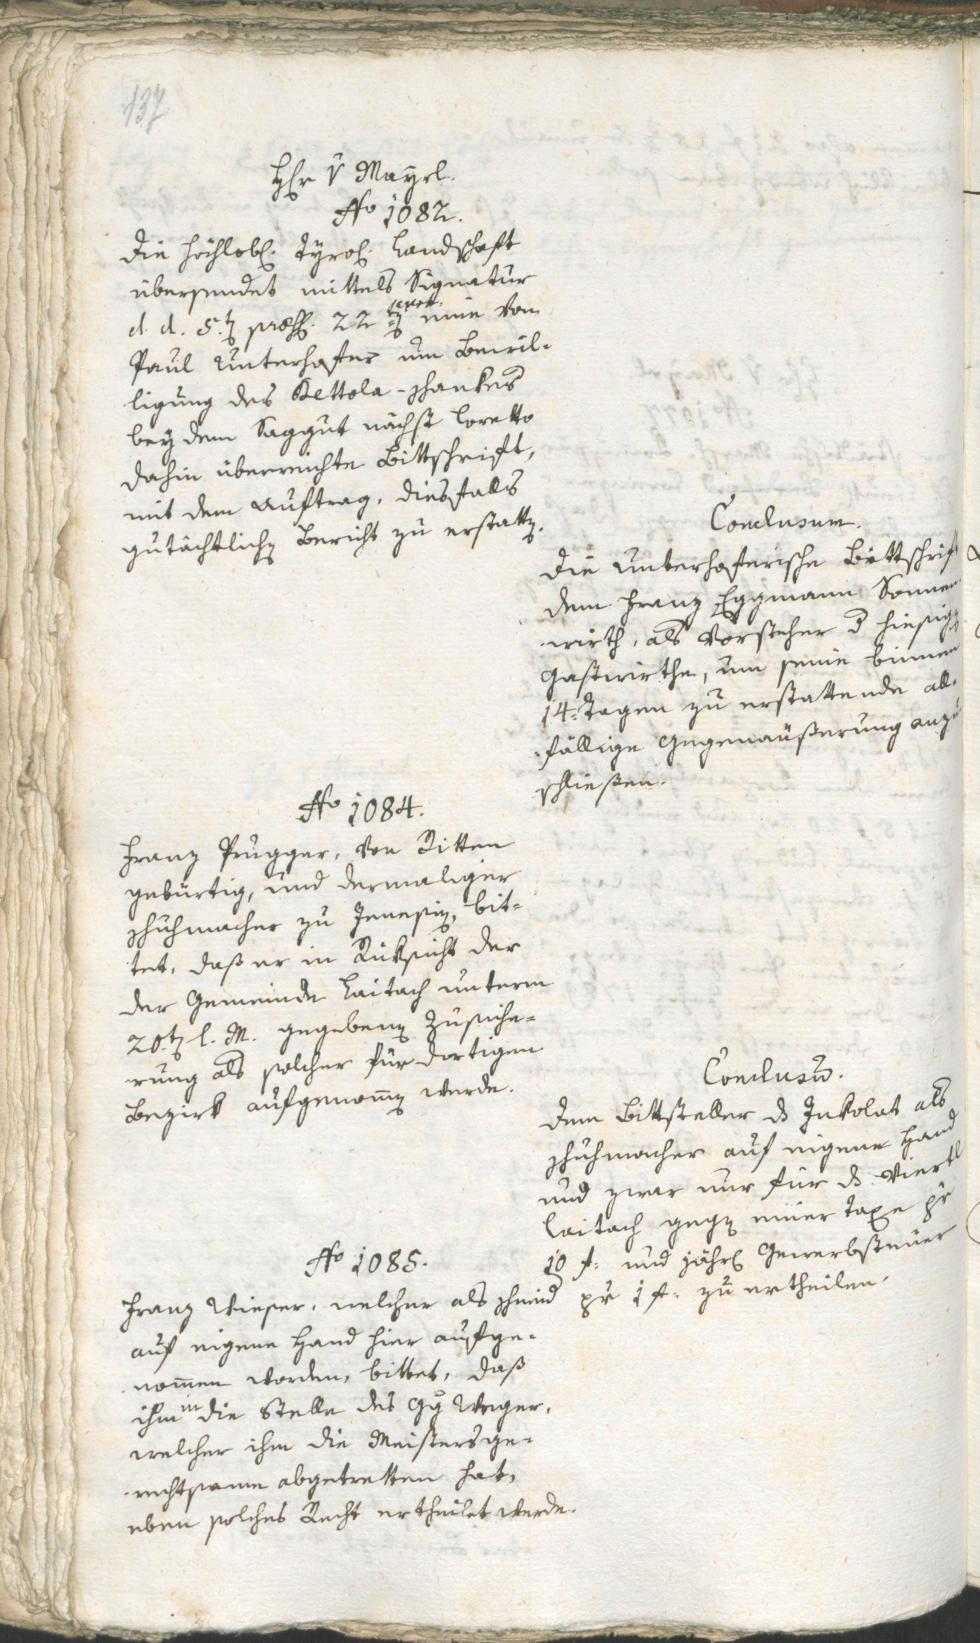 137
H̄r v Mayrl.
No 1082.
Die hochlobl. Tyrol. Landschaft
übersendet mittels Signatur
d. d. 5.t præs. 22 eine von
Paul Unterhofer um Bewil-
ligung des Kettola-schankes
bey dem Saggut nächst Loretto
dahin überreichte Bittschrift,
mit dem Auftrag, diesfalls
gutächtlich Bericht zu erstatt.
Conclusum.
Die Unterhoferische Bittschrift
dem Franz Eggmann Sonnen
wirth, als Vorsteher d hiesig
Gastwirthe, um seine binnen
14. Tagen zu erstattende all-
fällige Gegenäußerung anzu
schließen.
No 1084.
Franz Prugger, von Ritten
gebürtig, und dermaliger
Schuhmacher zu Jenesien, bit-
tet, daß er in Rüksicht der
der Gemeinde Laitach unterm
20.t l. M. gegeben Zusiche-
rung als solcher für dortigen
Bezirk aufgenom̄en werde.
Conclusum.
Dem Bittsteller ds Inkolat als
Schuhmacher auf eigene Hand
und zwar nur für ds Viertl
Laitach gegen einer Taxe pr
10 f. und jährl Gewerbsteuer
pr 1 f. zu ertheilen.
No 1085.
Franz Wieser, welcher als Schmid
auf eigene Hand hier aufge-
nom̄en worden, bittet, daß
ihm in die Stelle des Weger,
welcher ihm die Meistersge-
rechtsame abgetretten hat,
eben solches Recht ertheilet werde.